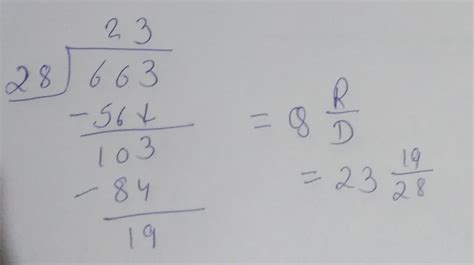 23
28 663
-56↓
103
-84
19
= Q R/D
= 23 19/28